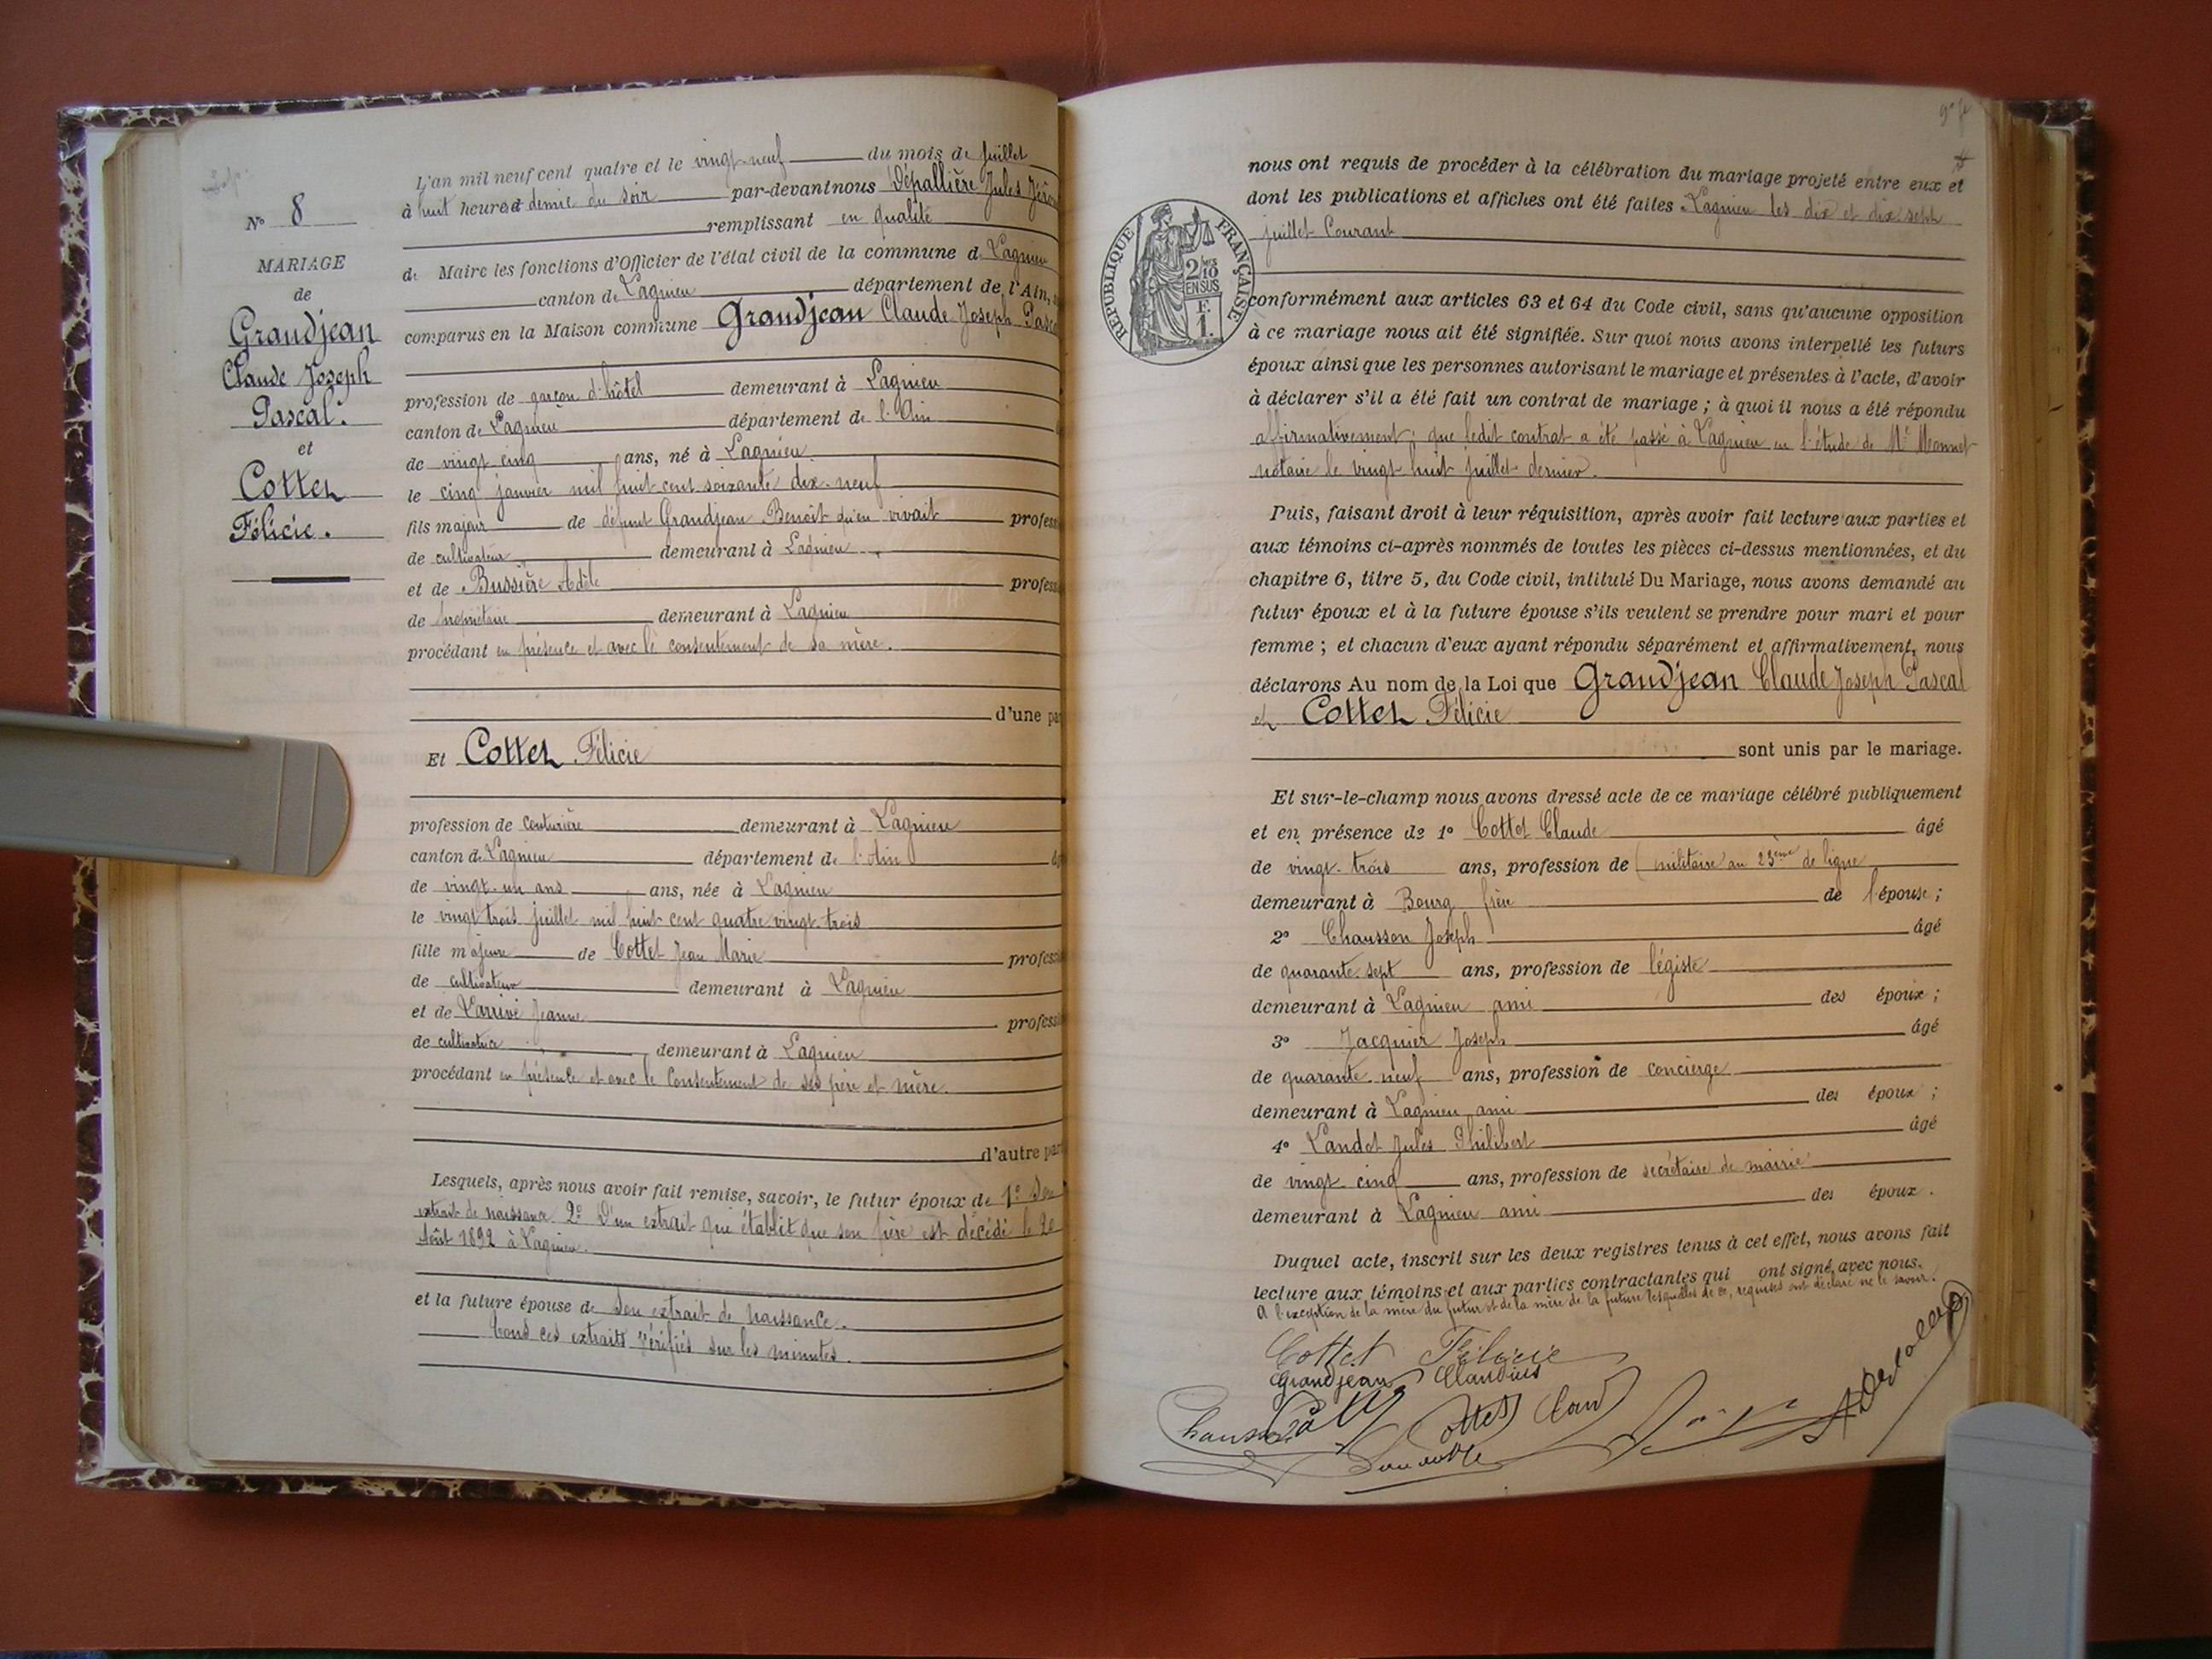 N° 8
MARIAGE
de
Grandjean
Claude Joseph
Pascal.
et
Cottet
Félicie.
L'an mil neuf cent quatre et le vingt-neuf du mois de juillet
à huit heures et demie du soir par-devant nous Dépallière Jules
remplissant en qualité
de Maire les fonctions d'Officier de l'état civil de la commune de Lagnieu
canton de Lagnieu département de l'Ain,
comparus en la Maison commune Grandjean Claude Joseph
profession de garçon d'hôtel demeurant à Lagnieu
canton de Lagnieu département de l'Ain
de vingt cinq ans, né à Lagnieu
le cinq janvier mil huit cent soixante dix-neuf
fils majeur de défunt Grandjean Benoît qu'en vivait profess
de cultivateur demeurant à Lagnieu
et de Bussière Adèle profess
de propriétaire demeurant à Lagnieu
procédant en présence et avec le consentement de sa mère.
d'une pa
Et Cottet Félicie
profession de couturière demeurant à Lagnieu
canton de Lagnieu département de l'Ain
de vingt-un ans ans, née à Lagnieu
le vingt trois juillet mil huit cent quatre vingt-trois
fille majeure de Cottet Jean Marie profess
de cultivateur demeurant à Lagnieu
et de Larrivé Jeanne profess
de cultivatrice demeurant à Lagnieu
procédant en présence et avec le Consentement de ses père et mère.
d'autre par
Lesquels, après nous avoir fait remise, savoir, le futur époux de 1° Son
extrait de naissance 2° D'un extrait qui établit que son père est décédé le 20
Août 1892 à Lagnieu.
et la future épouse de Son extrait de naissance.
Tous ces extraits vérifiés sur les minutes.
nous ont requis de procéder à la célébration du mariage projeté entre eux et
dont les publications et affiches ont été faites Lagnieu les dix et dix sept
juillet Courant
RÉPUBLIQUE FRANÇAISE
2/10
EN SUS
F.
1.
conformément aux articles 63 et 64 du Code civil, sans qu'aucune opposition
à ce mariage nous ait été signifiée. Sur quoi nous avons interpellé les futurs
époux ainsi que les personnes autorisant le mariage et présentes à l'acte, d'avoir
à déclarer s'il a été fait un contrat de mariage ; à quoi il nous a été répondu
affirmativement ; que ledit contrat a été passé à Lagnieu en l'étude de Me Monnet
notaire le vingt huit juillet dernier.
Puis, faisant droit à leur réquisition, après avoir fait lecture aux parties et
aux témoins ci-après nommés de toutes les pièces ci-dessus mentionnées, et du
chapitre 6, titre 5, du Code civil, intitulé Du Mariage, nous avons demandé au
futur époux et à la future épouse s'ils veulent se prendre pour mari et pour
femme ; et chacun d'eux ayant répondu séparément et affirmativement, nous
déclarons Au nom de la Loi que Grandjean Claude Joseph Pascal
et Cottet Félicie
sont unis par le mariage.
Et sur-le-champ nous avons dressé acte de ce mariage célébré publiquement
et en présence de 1° Cottet Claude âgé
de vingt-trois ans, profession de militaire au 23ème de ligne
demeurant à Bourg frère de l'épouse ;
2° Chausson Joseph âgé
de quarante-sept ans, profession de légiste
demeurant à Lagnieu ami des époux ;
3° Jacquier Joseph âgé
de quarante-neuf ans, profession de concierge
demeurant à Lagnieu ami des époux ;
4° Landet Jules Philibert âgé
de vingt cinq ans, profession de secrétaire de mairie
demeurant à Lagnieu ami des époux.
Duquel acte, inscrit sur les deux registres tenus à cet effet, nous avons fait
lecture aux témoins et aux parties contractantes qui ont signé avec nous.
A l'exception de la mère du futur et de la mère de la future lesquelles de ce, requises ont déclaré ne le savoir.
Cottet Félicie
Grandjean Claudius
Cottet Claud